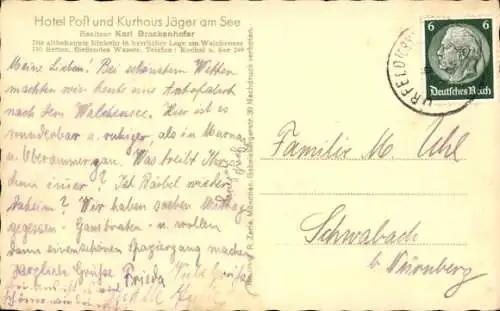 Hotel Post und Kurhaus Jäger am See
Besitzer Karl Brackenhofer
Die altbekannte Einkehr in herrlicher Lage am Walchensee
Betten, fließendes Wasser. Telefon: Kochel a. See 249
Meine Lieben! Bei schönstem Wetter
machten wir heute eine Autofahrt
nach dem Walchensee. Hier ist es
wunderbar u. ruhiger, als in Murnau
u. Oberammergau. Was treibt Ihr
denn immer? Ist Bärbel wieder
daheim? Wir haben soeben Mittag
gegessen - Gansbraten - u. wollen
dann einen schönen Spaziergang machen
Herzliche Grüße Frieda Viele Grüße
R. Zerle, München,
Nachdruck verboten.
URFELD
6 6
Deutsches Reich
Familie M. Uhl
Schwabach
b. Nürnberg